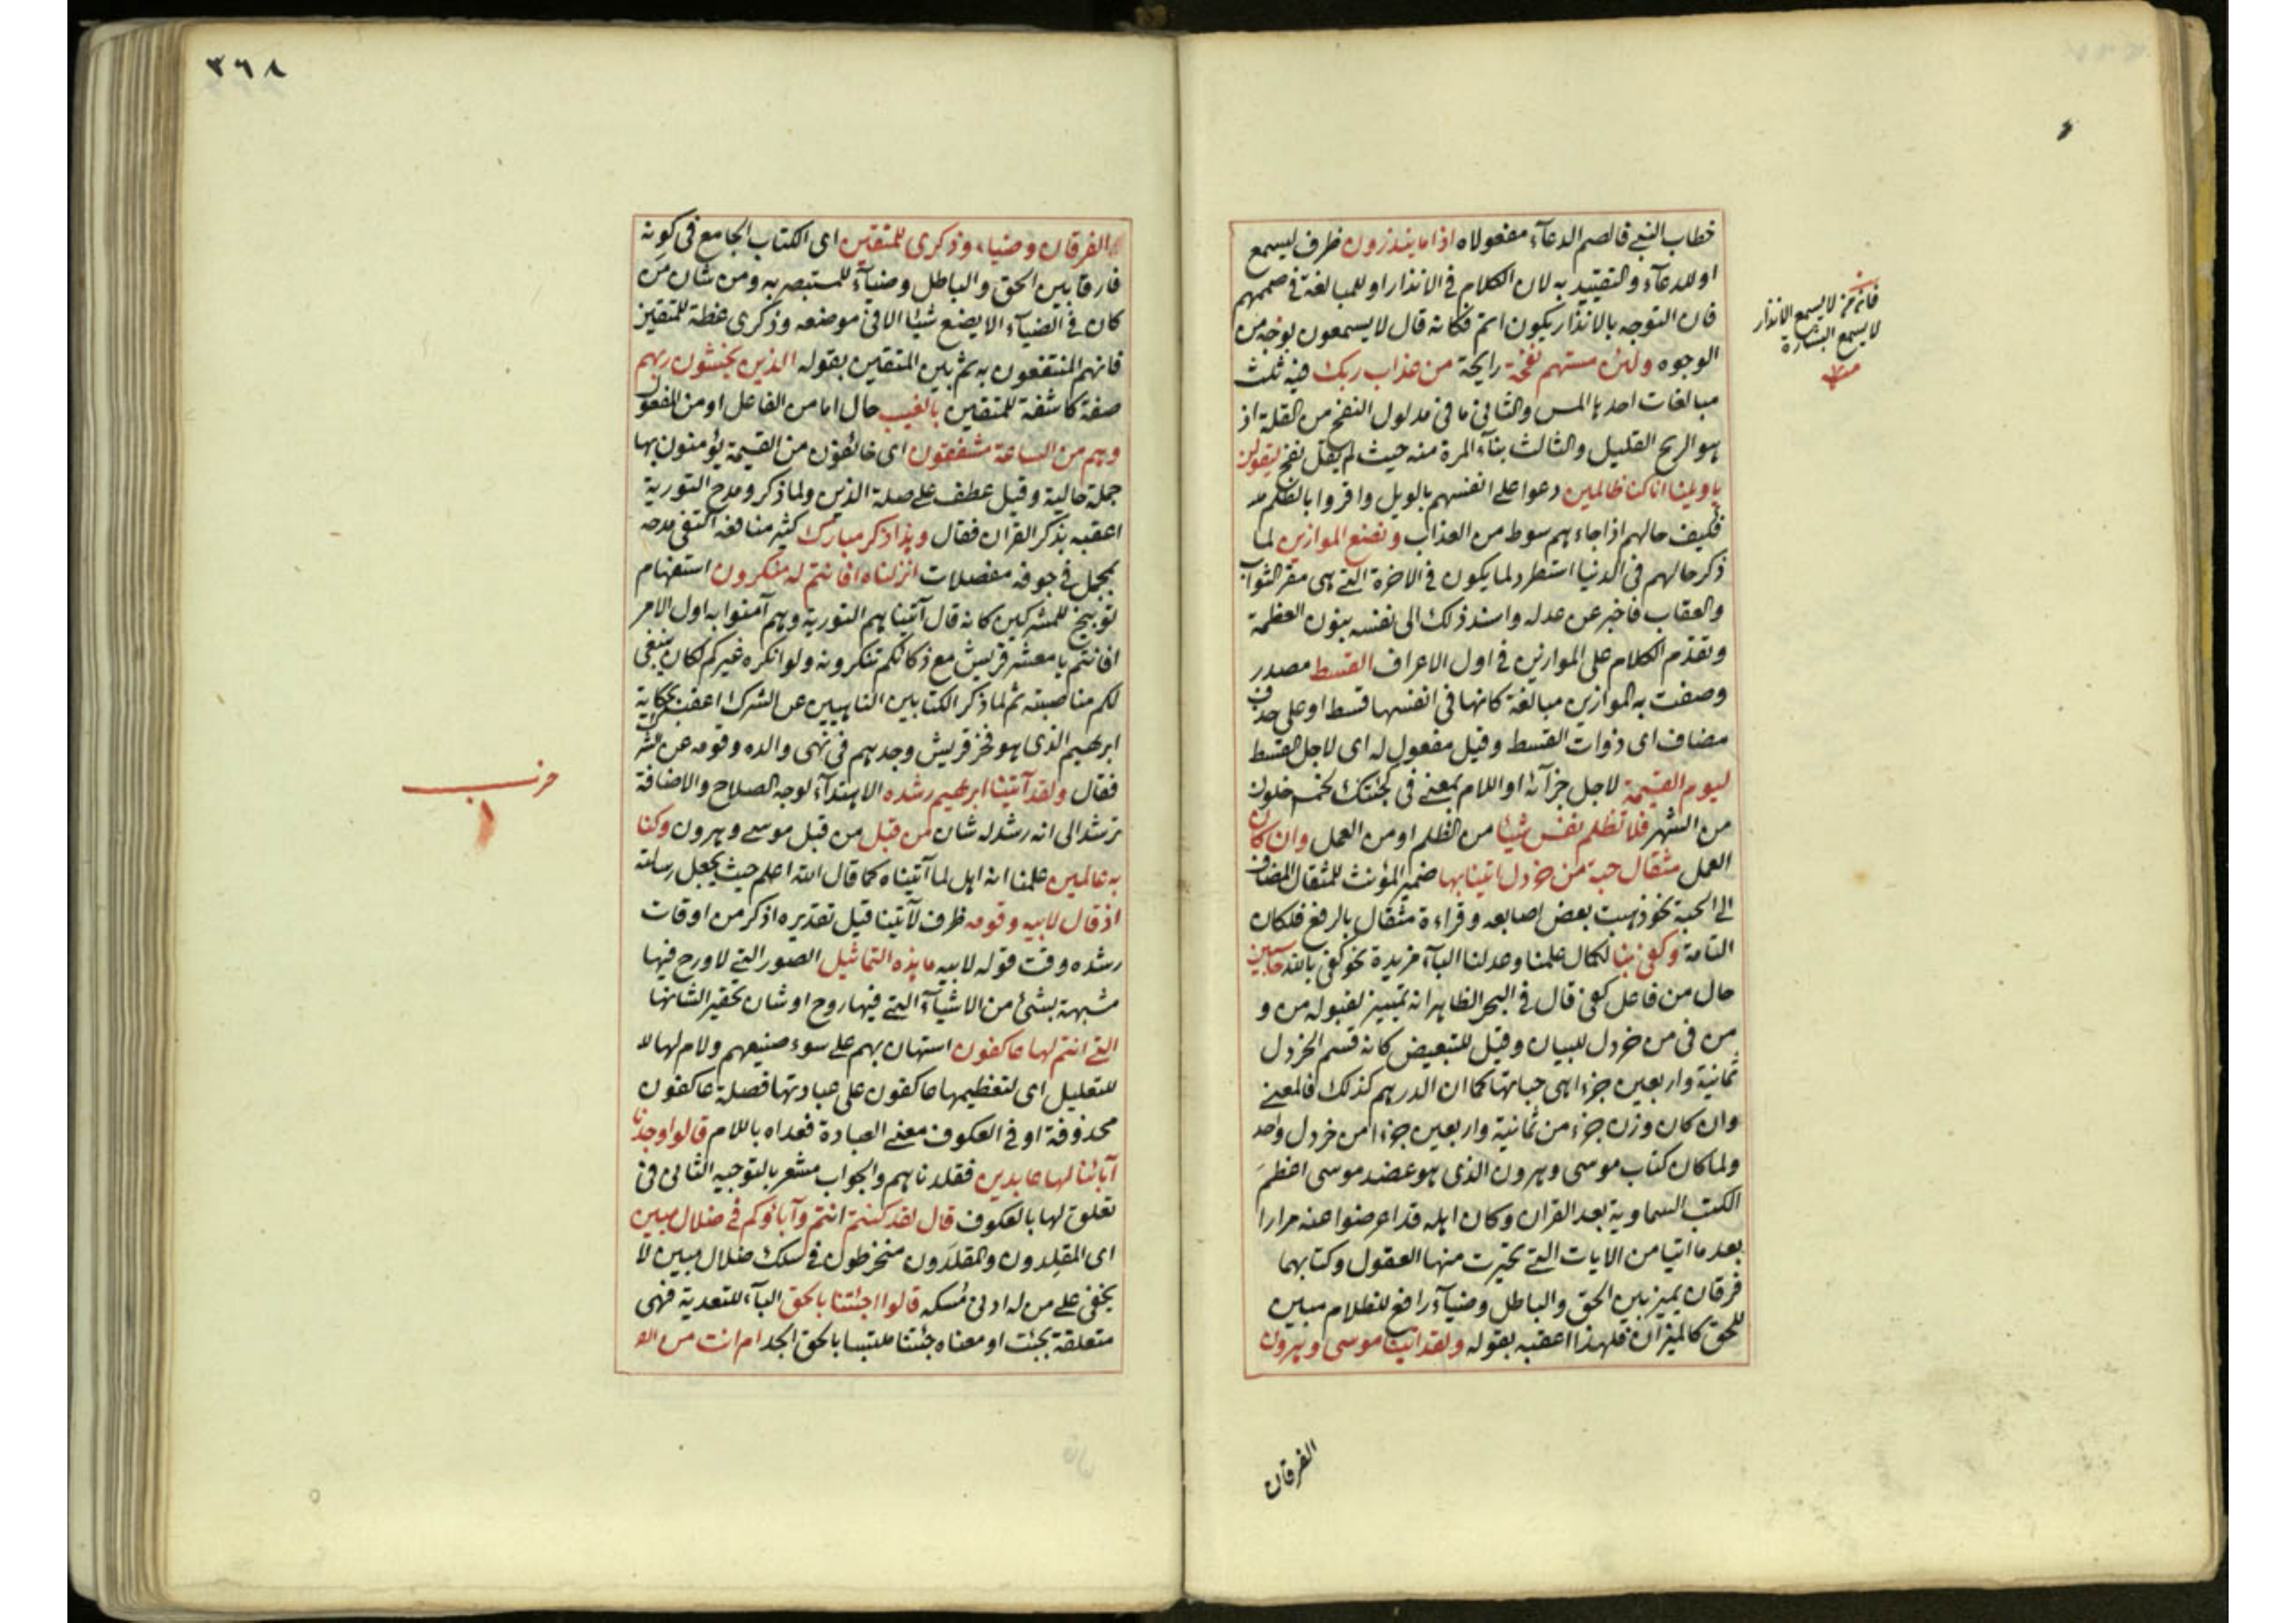 خطاب النبي فالصم الدعآء مفعولاه اذا ما ينذرون ظرف ليسمع
او للدعآء والتقييد به لان الكلام في الانذار او للمبالغة في صممهم
فان التوجه بالانذار يكون اتم فكانه قال لا يسمعون بوجه من
الوجوه ولئن مستهم نفخة رايحة من عذاب ربك فيه ثلث
مبالغات احديها المس والثاني ما في مدلول النفخ من القلة اذ
هو الريح القليل والثالث بناء المرة منه حيث لم يقل نفخ ليقولن
يا ويلنا انا كنا ظالمين دعوا على انفسهم بالويل واقروا بالظلم
فكيف حالهم اذا جاءهم سوط من العذاب ونضع الموازين لما
ذكر حالهم في الدنيا استطرد لما يكون في الاخرة التي هي مقر الثواب
والعقاب فاخبر عن عدله واسند ذلك الى نفسه بنون العظمة
وتقدم الكلام على الموازين في اول الاعراف القسط مصدر
وصفت به الموازين مبالغة كانها في انفسها قسط او على حذف
مضاف اى ذوات القسط وقيل مفعول له اى لاجل القسط
ليوم القيمة لاجل جزآئه او اللام بمعنى في كجئتك لخمس خلون
من الشهر فلا تظلم نفس شيئا من الظلم او من العمل وان كان
العمل مثقال حبة من خردل اتينا بها ضمير المؤنث للمثقال المضاف
الى الحبة نحو ذهبت بعض اصابعه وقراءة مثقال بالرفع فلكان
التامة وكفى بنا لكمال علمنا وعدلنا البآء مزيدة نحو كفى بالله حاسبين
حال من فاعل كفى قال في البحر الظاهر انه تمييز لقبوله من و
من في من خردل للبيان وقيل للتبعيض كانه قسم الخردل
ثمانية واربعين جزءا هي حباتها كما ان الدرهم كذلك فالمعنى
وان كان وزن جزء من ثمانية واربعين جزءا من خردل واحد
ولما كان كتاب موسى وهرون الذى هو عضد موسى اعظم
الكتب السماوية بعد القران وكان اهله قد اعرضوا عنه مرارا
بعد ما اتيا من الايات التي تحيرت منها العقول وكتابهما
فرقان يميز بين الحق والباطل وضيآء رافع للظلام مبين
للحق كالميزان فلهذا اعقبه بقوله ولقد اتينا موسى وهرون
الفرقان
فانه من لا يسمع الانذار
لا يسمع البشارة
منه
٣٦٨
الفرقان وضياء وذكرى للمتقين اى الكتاب الجامع في كونه
فارقا بين الحق والباطل وضيآء للمستبصر به ومن شان من
كان في الضيآء الا يضع شيئا الا في موضعه وذكرى عظة للمتقين
فانهم المنتفعون به ثم بين المتقين بقوله الذين يخشون ربهم
صفة كاشفة للمتقين بالغيب حال اما من الفاعل او من المفعول
وهم من الساعة مشفقون اى خائفون من القيمة يؤمنون بها
جملة حالية وقيل عطف على صلة الذين ولما ذكر ومدح التورية
اعقبه بذكر القران فقال وهذا ذكر مبارك كثير منافعه اكتفى مدحه
بمجمل في جوفه مفصلات انزلناه افانتم له منكرون استفهام
توبيخ للمشركين كانه قال آتيناهم التورية وهم آمنوا به اول الامر
افانتم يا معشر قريش مع ذكائكم تنكرونه ولو انكره غيركم لكان ينبغي
لكم مناصبته ثم لما ذكر الكتابين الناهيين عن الشرك اعقبه بحكاية
ابرهيم الذى هو فخر قريش وجدهم في نهى والده وقومه عن الشرك
فقال ولقد آتينا ابرهيم رشده الاهتدآء لوجه الصلاح والاضافة
ترشد الى انه رشد له شان من قبل من قبل موسى وهرون وكنا
به عالمين علمنا انه اهل لما آتيناه كما قال الله اعلم حيث يجعل رسالته
اذ قال لابيه وقومه ظرف لآتينا قيل تقديره اذكر من اوقات
رشده وقت قوله لابيه ما هذه التماثيل الصور التي لا روح فيها
مشبهة بشئ من الاشيآء التي فيها روح او شان تحقير الشانها
التي انتم لها عاكفون استهان بهم على سوء صنيعهم ولام لها
للتعليل اى لتعظيمها عاكفون على عبادتها فصلة عاكفون
محذوفة او في العكوف معنى العبادة فعداه باللام قالوا وجدنا
آبائنا لها عابدين فقلدناهم والجواب مشعر بالتوجيه الثاني في
تعلق لها بالعكوف قال لقد كنتم انتم وآباؤكم في ضلال مبين
اى المقلِدون والمقلَدون منخرطون في سلك ضلال مبين لا
يخفى على من له ادنى مُسكه قالوا اجئتنا بالحق البآء للتعدية فهى
متعلقة بجئت او معناه جئتنا ملتبسا بالحق الجد ام انت من الا
حزب
١